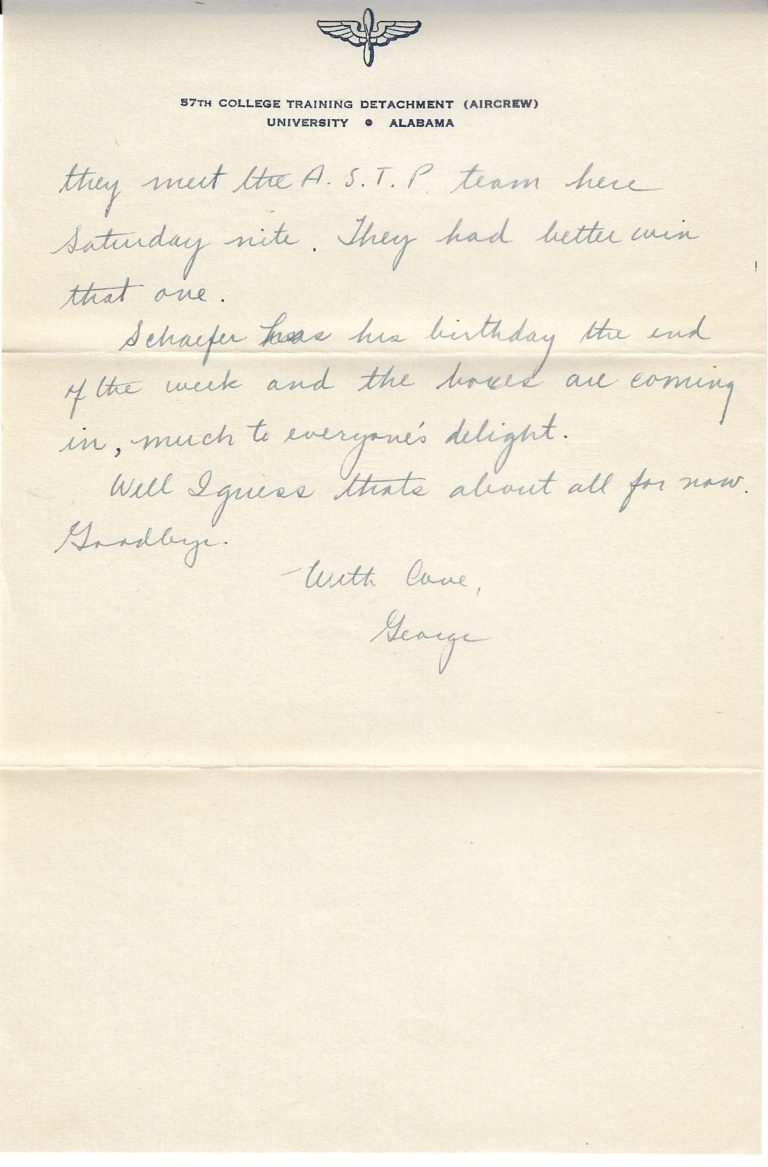 57TH COLLEGE TRAINING DETACHMENT (AIRCREW)
UNIVERSITY • ALABAMA
they meet the A. S. T. P. team here
Saturday nite. They had better win
that one.
Schaefer has his birthday the end
of the week and the boxes are coming
in, much to everyone's delight.
Well I guess thats about all for now.
Goodbye.
With Love,
George